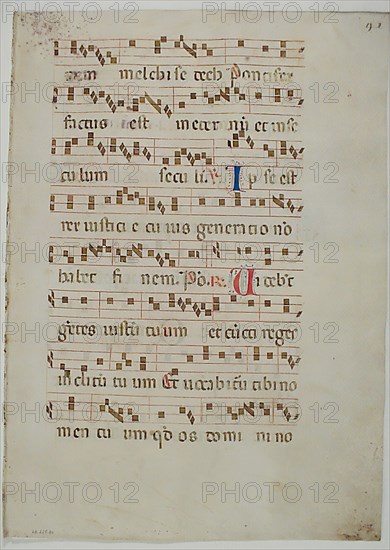 rem melchisedech Pontifex
factus est in eternū et in se
culum seculi. R. Ipse est
rex iusticie cuius generatio nō
habet finem. Pō. R. Videbūt
gētes iustū tuum et cūcti reges
inclitū tuum Et uocabitū tibi no
men tuum qd os domini no